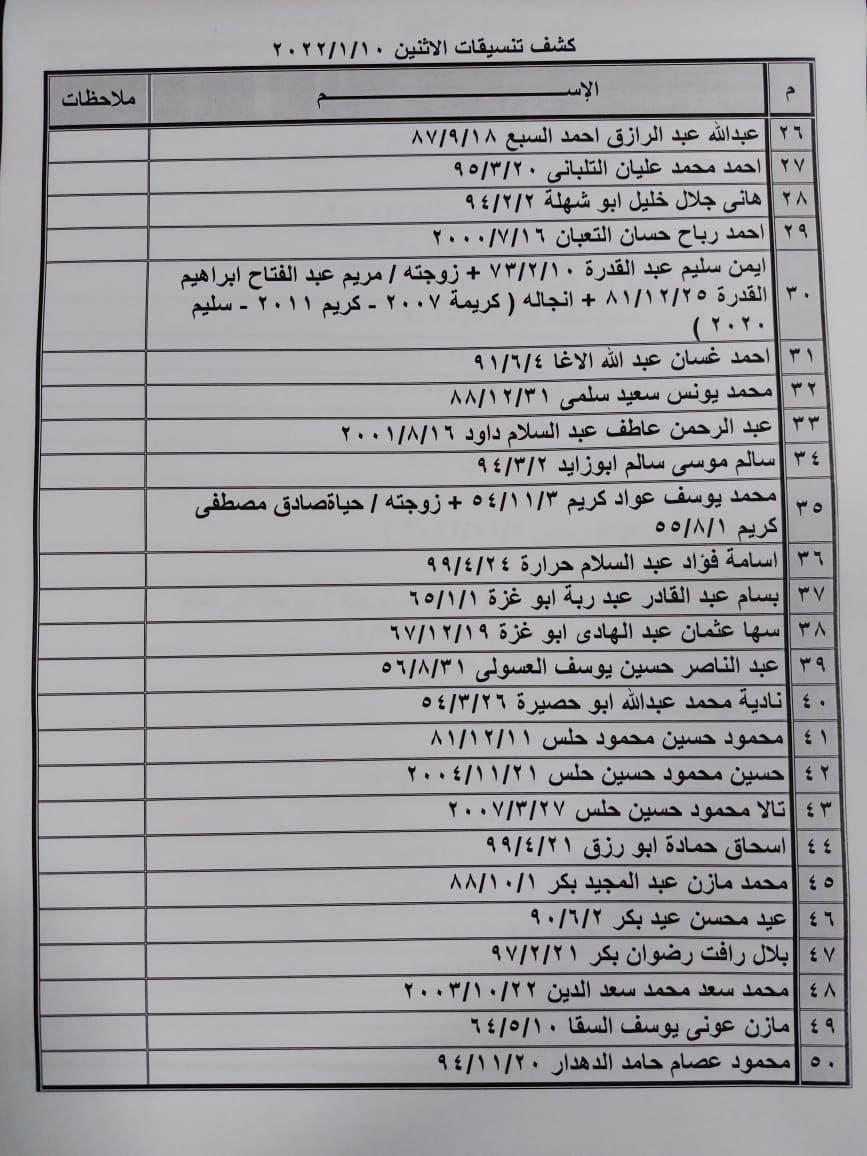 كشف تنسيقات الاثنين ٢٠٢٢/١/١٠
م الإســـــــــم ملاحظات
٢٦ عبدالله عبد الرازق احمد السبع ٨٧/٩/١٨
٢٧ احمد محمد عليان التلبانى ٩٥/٣/٢٠
٢٨ هانى جلال خليل ابو شهلة ٩٤/٢/٢
٢٩ احمد رباح حسان التعبان ٢٠٠٠/٧/١٦
٣٠ ايمن سليم عبد القدرة ٧٣/٢/١٠ + زوجته / مريم عبد الفتاح ابراهيم
القدرة ٨١/١٢/٢٥ + انجاله ( كريمة ٢٠٠٧ - كريم ٢٠١١ - سليم
٢٠٢٠ )
٣١ احمد غسان عبد الله الاغا ٩١/٦/٤
٣٢ محمد يونس سعيد سلمى ٨٨/١٢/٣١
٣٣ عبد الرحمن عاطف عبد السلام داود ٢٠٠١/٨/١٦
٣٤ سالم موسى سالم ابوزايد ٩٤/٣/٢
٣٥ محمد يوسف عواد كريم ٥٤/١١/٣ + زوجته / حياةصادق مصطفى
كريم ٥٥/٨/١
٣٦ اسامة فؤاد عبد السلام حرارة ٩٩/٤/٢٤
٣٧ بسام عبد القادر عبد ربة ابو غزة ٦٥/١/١
٣٨ سها عثمان عبد الهادى ابو غزة ٦٧/١٢/١٩
٣٩ عبد الناصر حسين يوسف العسولى ٥٦/٨/٣١
٤٠ نادية محمد عبدالله ابو حصيرة ٥٤/٣/٢٦
٤١ محمود حسين محمود حلس ٨١/١٢/١١
٤٢ حسين محمود حسين حلس ٢٠٠٤/١١/٢١
٤٣ تالا محمود حسين حلس ٢٠٠٧/٣/٢٧
٤٤ اسحاق حمادة ابو رزق ٩٩/٤/٢١
٤٥ محمد مازن عبد المجيد بكر ٨٨/١٠/١
٤٦ عيد محسن عيد بكر ٩٠/٦/٢
٤٧ بلال رافت رضوان بكر ٩٧/٢/٢١
٤٨ محمد سعد محمد سعد الدين ٢٠٠٣/١٠/٢٢
٤٩ مازن عونى يوسف السقا ٦٤/٥/١٠
٥٠ محمود عصام حامد الدهدار ٩٤/١١/٢٠